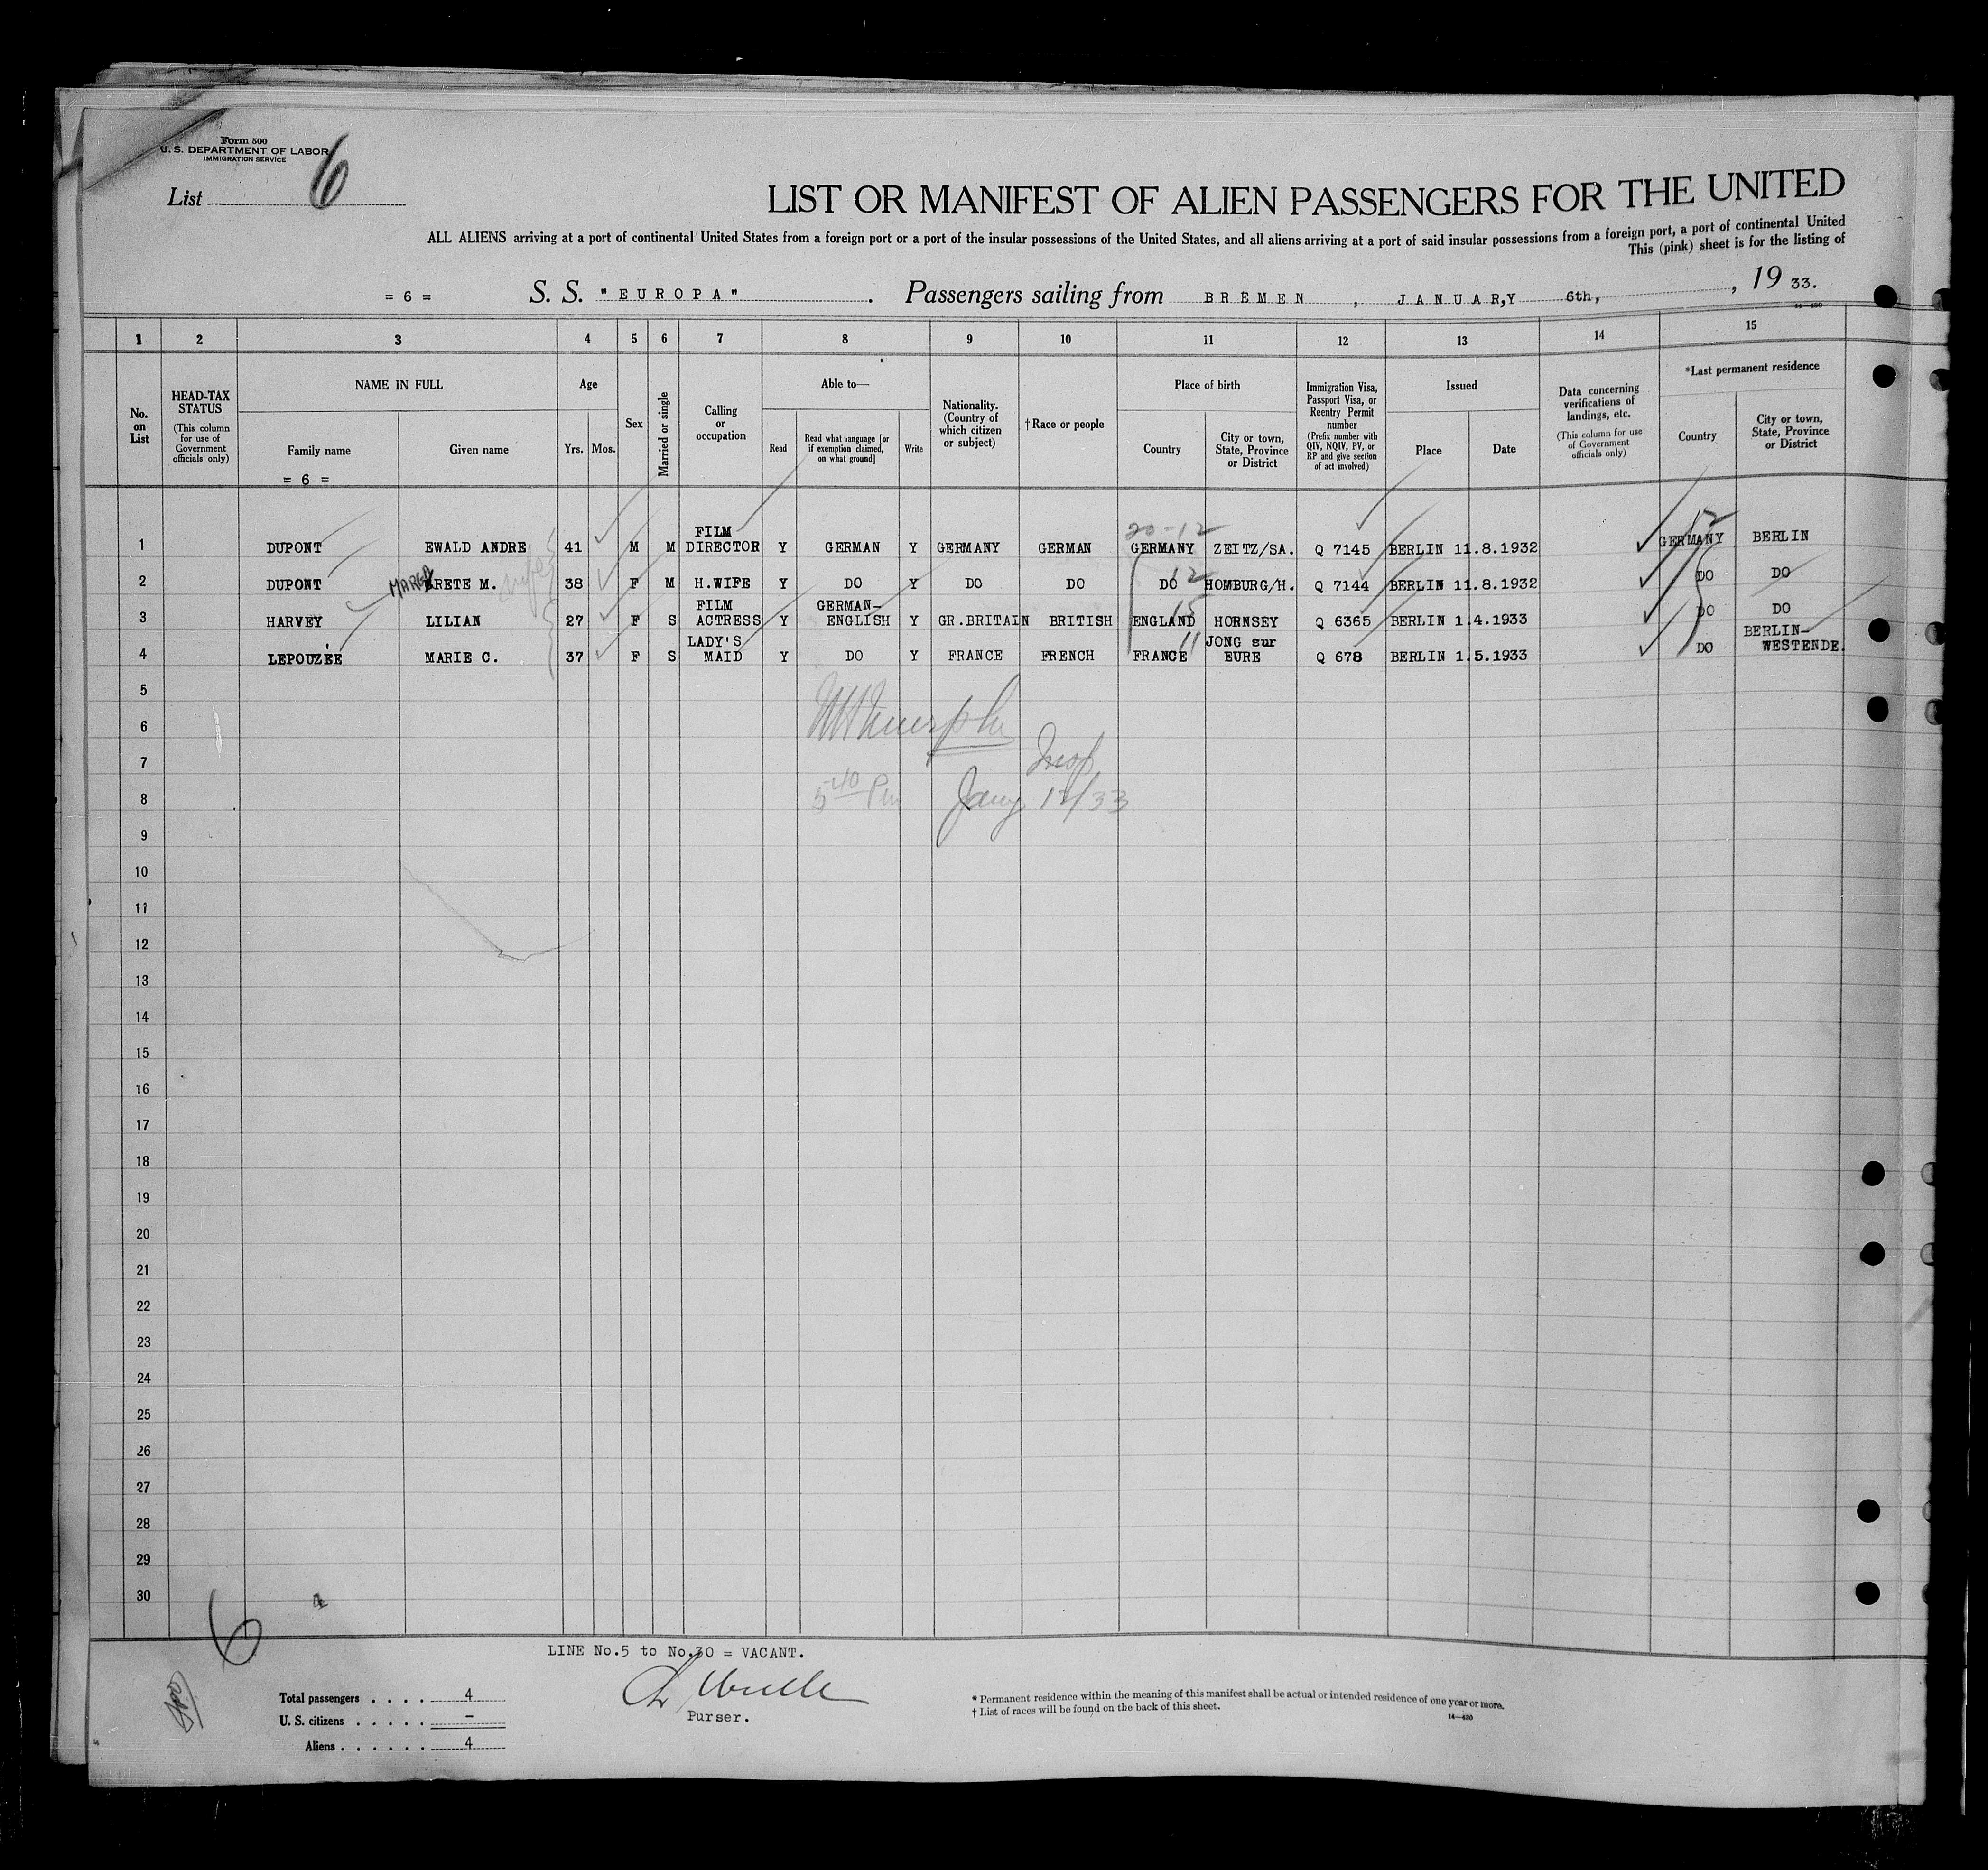 Form 500
U. S. DEPARTMENT OF LABOR
IMMIGRATION SERVICE
List 6
LIST OR MANIFEST OF ALIEN PASSENGERS FOR THE UNITED
ALL ALIENS arriving at a port of continental United States from a foreign port or a port of the insular possessions of the United States, and all aliens arriving at a port of said insular possessions from a foreign port, a port of continental United
This (pink) sheet is for the listing of
= 6 = S. S. "EUROPA" . Passengers sailing from BREMEN , JANUAR,Y 6th, , 19 33.
14—430
1 2 3 4 5 6 7 8 9 10 11 12 13 14 15
No. on List
HEAD-TAX STATUS
(This column for use of Government officials only)
NAME IN FULL
Family name
Given name
Age
Yrs. Mos.
Sex
Married or single
Calling or occupation
Able to—
Read
Read what language [or if exemption claimed, on what ground]
Write
Nationality. (Country of which citizen or subject)
†Race or people
Place of birth
Country
City or town, State, Province or District
Immigration Visa, Passport Visa, or Reentry Permit number
(Prefix number with QIV, NQIV, PV, or RP and give section of act involved)
Issued
Place
Date
Data concerning verifications of landings, etc.
(This column for use of Government officials only)
*Last permanent residence
Country
City or town, State, Province or District
= 6 =
20-12
12
1 DUPONT EWALD ANDRE 41 M M FILM DIRECTOR Y GERMAN Y GERMANY GERMAN GERMANY ZEITZ/SA. Q 7145 BERLIN 11.8.1932 GERMANY BERLIN
2 DUPONT MARGA GRETE M. wife 38 F M H.WIFE Y DO Y DO DO DO 12 HOMBURG/H. Q 7144 BERLIN 11.8.1932 DO DO
3 HARVEY LILIAN 27 F S FILM ACTRESS Y GERMAN-ENGLISH Y GR.BRITAIN BRITISH ENGLAND 15 HORNSEY Q 6365 BERLIN 1.4.1933 DO DO
4 LEPOUZÉE MARIE C. 37 F S LADY'S MAID Y DO Y FRANCE FRENCH FRANCE 11 JONG sur EURE Q 678 BERLIN 1.5.1933 DO BERLIN-WESTENDE.
5
6
7 Insp
8 5 40 Pm Jany 12/33
9
10
11
12
13
14
15
16
17
18
19
20
21
22
23
24
25
26
27
28
29
30
6
LINE No.5 to No.30 = VACANT.
Total passengers . . . . 4
U. S. citizens . . . . . –
Aliens . . . . . . 4
Purser.
* Permanent residence within the meaning of this manifest shall be actual or intended residence of one year or more.
† List of races will be found on the back of this sheet.
14—430